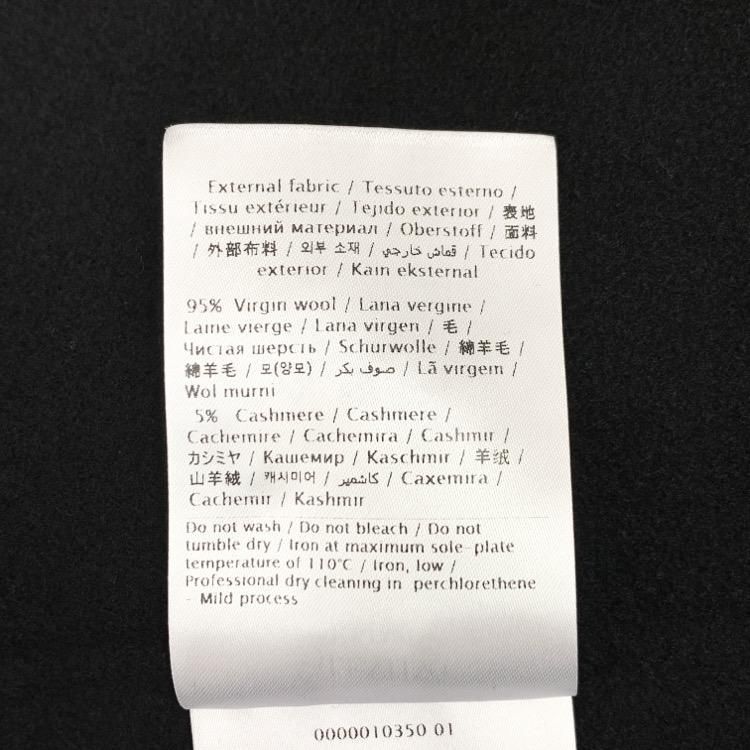 External fabric / Tessuto esterno /
Tissu extérieur / Tejido exterior / 表地
/ внешний материал / Oberstoff / 面料
/ 外部布料 / 외부 소재 / قماش خارجي / Tecido
exterior / Kain eksternal
95% Virgin wool / Lana vergine /
Laine vierge / Lana virgen / 毛 /
Чистая шерсть / Schurwolle / 綿羊毛 /
綿羊毛 / 모(양모) / صوف بكر / Lã virgem /
Wol murni
5% Cashmere / Cashmere /
Cachemire / Cachemira / Cashmir /
カシミヤ / Кашемир / Kaschmir / 羊绒 /
山羊絨 / 캐시미어 / كاشمير / Caxemira /
Cachemir / Kashmir
Do not wash / Do not bleach / Do not
tumble dry / Iron at maximum sole-plate
temperature of 110°C / Iron, low /
Professional dry cleaning in perchlorethene
- Mild process
0000010350 01